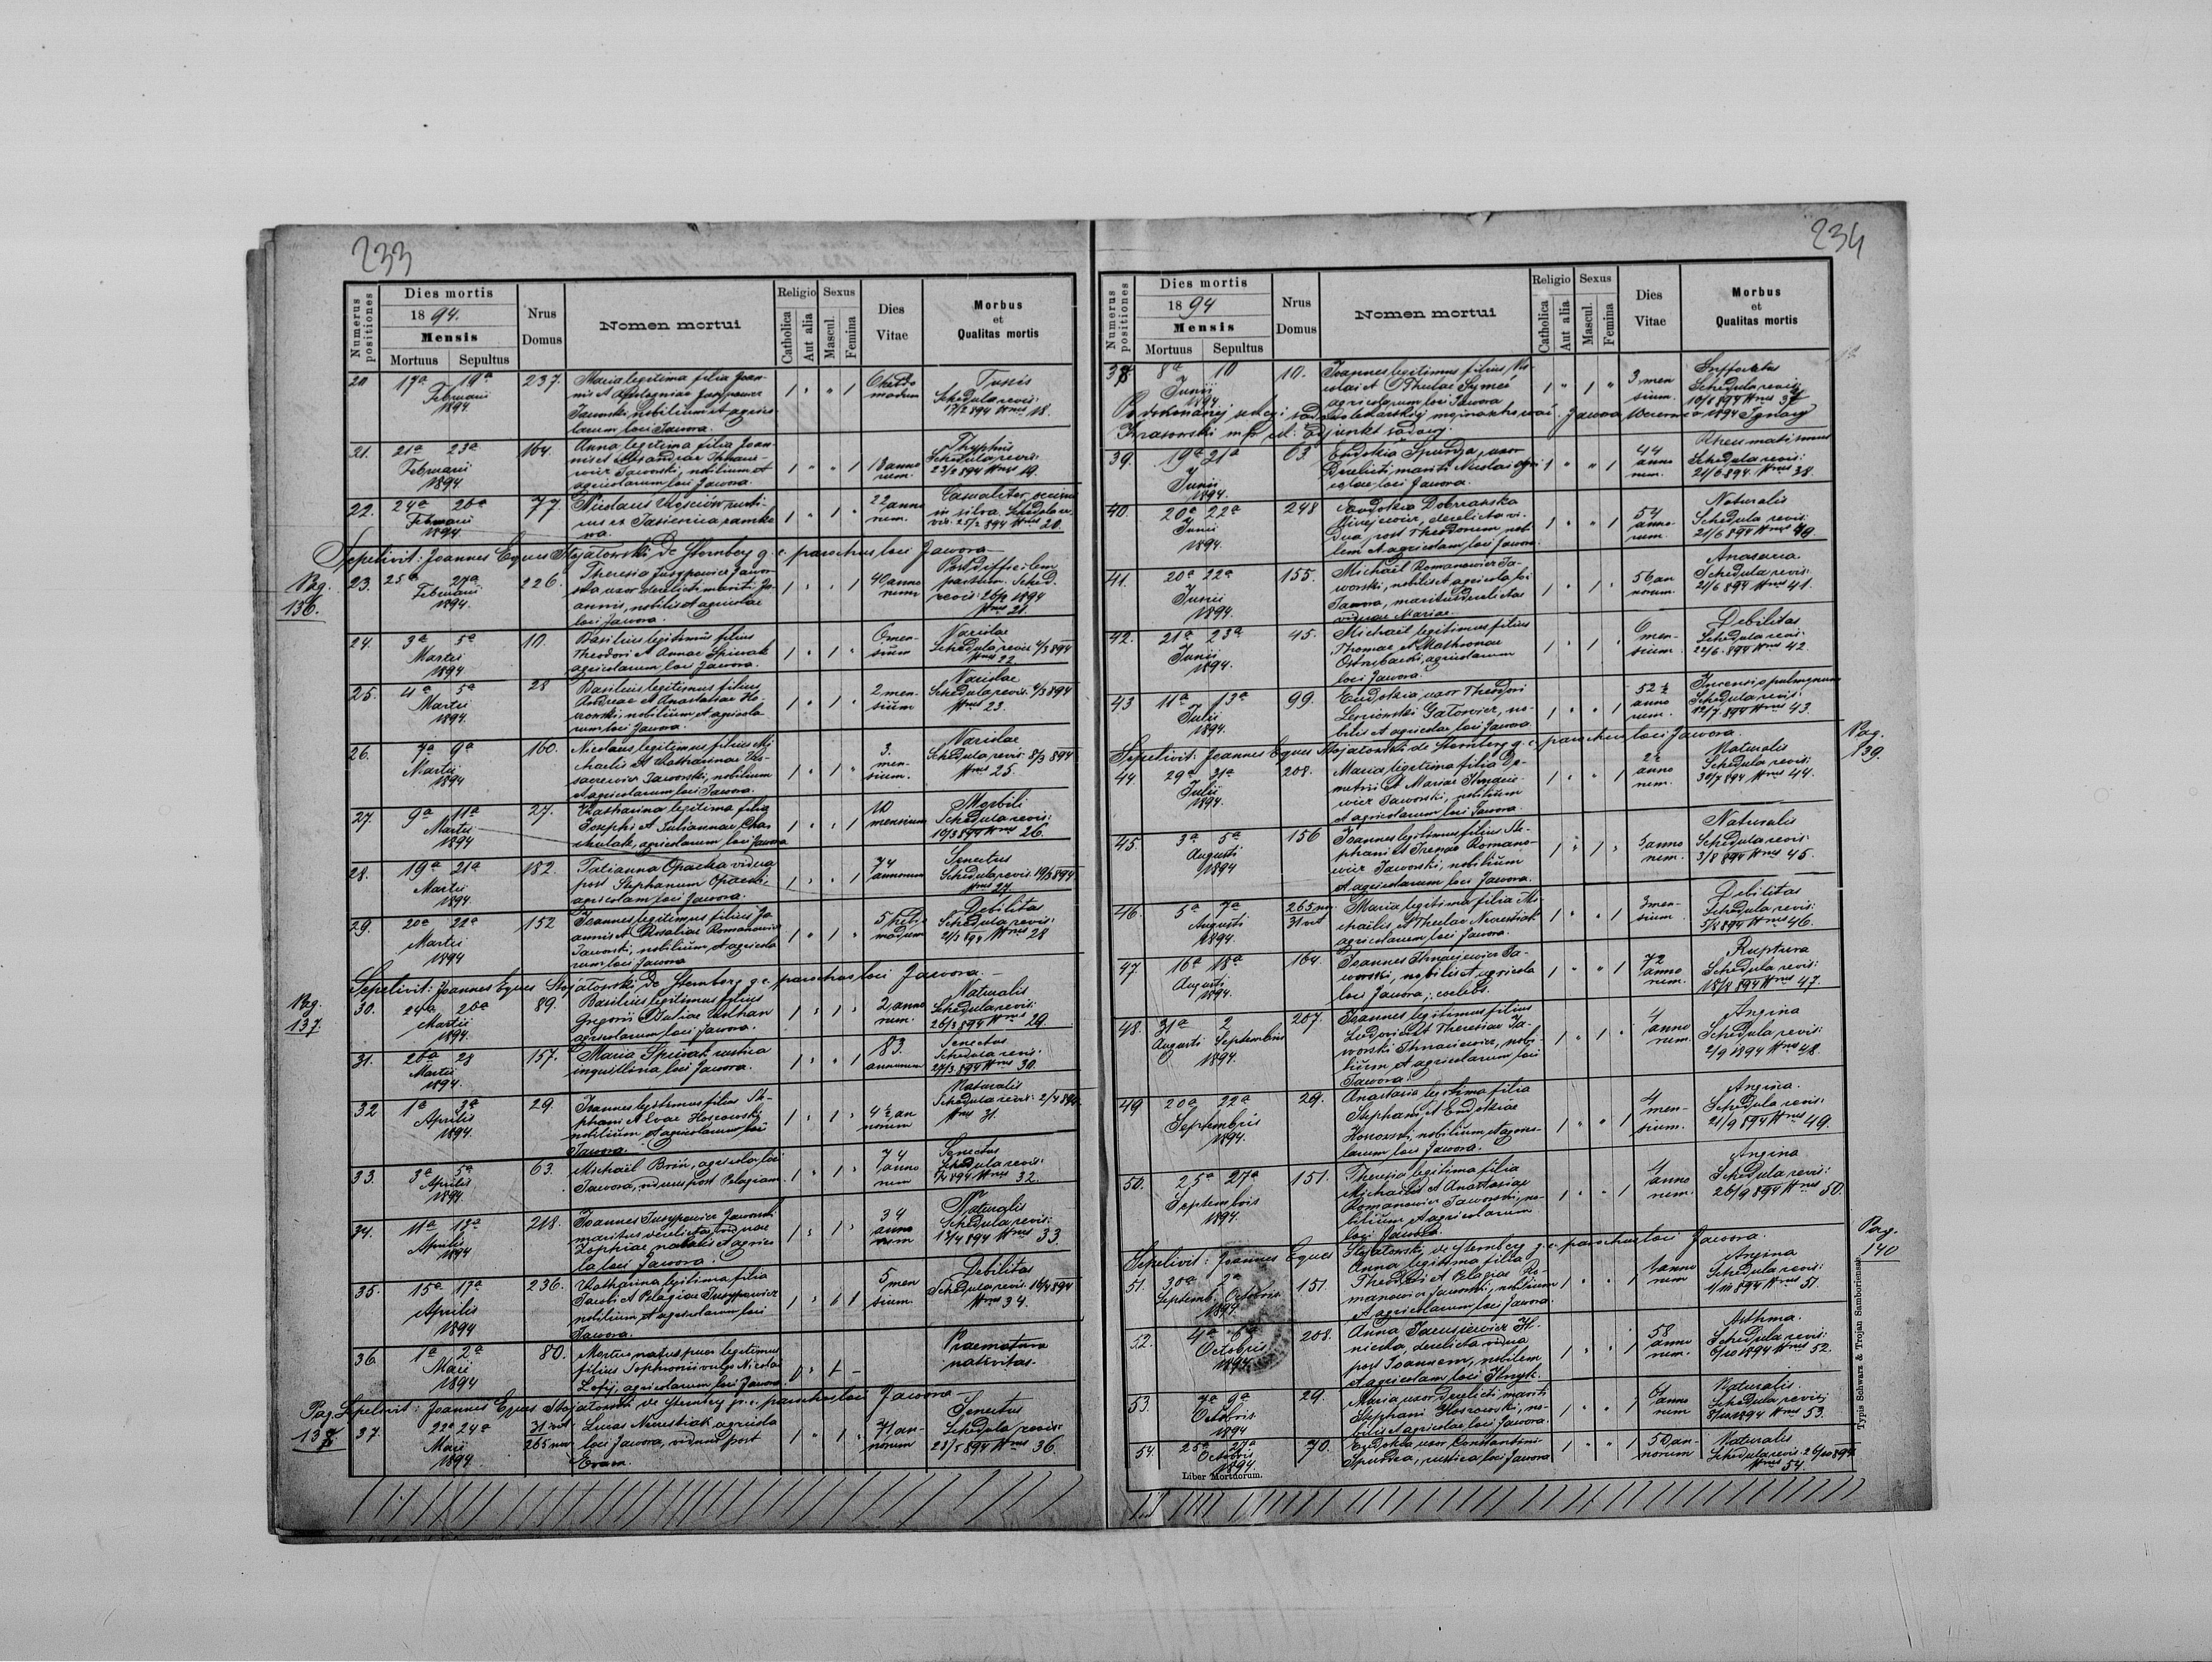 233
Numerus positiones
Dies mortis
1894.
Mensis
Mortuus Sepultus
Nrus Domus
Nomen mortui
Religio
Catholica
Aut alia
Sexus
Mascul.
Femina
Dies Vitae
Morbus et Qualitas mortis
20 17a 19a Februarii 1894 237.
Maria legitima filia Joan-
nis et
Jaworski, nobilium et agrico-
larum loci Jawora.
Tussis
Schedula revis:
17/2 894 18.
21. 21a 23a Februarii 1894 164.
Anna legitima filia Joan-
nis et Alexandrae
Jaworski, nobilium et
agricolarum loci Jawora.
18 anno
rum.
Typhus
Schedula revis:
23/2 894 19.
22. 24a 26a Februarii 1894. 77.
Nicolaus
ex Jasienica zamko
wa.
22 anno
rum.
Casualiter
in silva. Schedula re
vis. 25/2 894 20.
Sepelivit: Joannes Eques Stojałowski de Sternberg g. c. parochus loci Jawora
Pag. 136.
23. 25a 27a Februarii 1894. 226.
Theresia Jusypowicz Jawor-
ska uxor derelicti mariti Jo-
annis, nobilis et agricolae
loci Jawora.
40 anno
rum
Post difficilem
partum. Sched.
revis: 26/2 1894
21.
24. 3a 5a Martii 1894 10.
Basilius legitimus filius
Theodori et Annae Spiwak
agricolarum loci Jawora.
6 men
sium
Variolae
Schedula revis: 4/3 894
22
25. 4a 5a Martii 1894. 28
Basilius legitimus filius
Andreae et Anastasiae Ho-
szowski, nobilium et agricola
rum loci Jawora.
2 men.
sium
Variolae
Schedula revis: 4/3 894
23.
26. 7a 9a Martii 1894 160.
Nicolaus legitimus filius Mi
chaelis et Catharinae
Jaworski, nobilium
et agricolarum loci Jawora.
3.
men-
sium.
Variolae
Schedula revis: 8/3 894
25.
27. 9a 11a Martii 1894 27.
Katharina legitima filia
Josephi et Juliannae
agricolarum loci Jawora
10
mensium
Morbili
Schedula revis:
10/3 894 26.
28. 19a 21a Martii 1894 182.
Tatianna Opacka vidua
post Stephanum Opacki,
agricolam loci Jawora.
74
annorum
Senectus
Schedula revis: 19/3 894
27.
29. 20a 22a Martii 1894 152
Joannes legitimus filius Jo
annis et Rosaliae Romanowicz
Jaworski, nobilium et agricola
rum loci Jawora
5 hebdo
madum
Debilitas
Schedula revis:
21/3 894 28
Sepelivit: Joannes Eques Stojałowski de Sternberg g. c. parochus loci Jawora.
Pag. 137.
30. 24a 26a Martii 1894. 89.
Basilius legitimus filius
Gregorii et Juliae
agricolarum loci Jawora.
2 anno
rum.
Naturalis
Schedula revis:
26/3 894 29.
31. 26a 28 Martii 1894. 157.
Maria Spiwak rustica
inquillina loci Jawora.
83.
annorum
Senectus
Schedula revis:
27/3 894 30.
32 1a 3a Aprilis 1894. 29.
Joannes legitimus filius Ste-
phani et Evae Hoszowski,
nobilium et agricolarum loci
Jawora.
4½ an
norum
Naturalis
Schedula revis: 2/4 894
31.
33. 3a 5a Aprilis 1894. 63.
Michael Bryń, agricola loci
Jawora, viduus post Pelagiam.
74
anno
rum
Senectus
Schedula revis:
894 32.
34. 11a 13a Aprilis 1894 218.
Joannes Jusypowicz Jaworski
maritus derelictae viduae
Zophiae nobilis et agrico
la loci Jawora.
34
anno
rum
Naturalis
Schedula revis:
13/4 894 33.
35. 15a 17a Aprilis 1894 236.
Katharina legitima filia
Jacobi et Pelagiae Jusypowicz
nobilium et agricolarum loci
Jawora.
5
men
sium.
Debilitas
Schedula revis: 16/4 894
34.
36. 1a 2a Maii 1894 80.
Mortuus natus puer legitimus
filius Sophronii vulgo Nicolai
agricolarum loci Jawora.
Praematura
nativitas.
Sepelivit: Joannes Eques Stojałowski de Sternberg g. c. parochus loci Jawora
Pag. 137
37. 22a 24a Maii 1894 31 vet 265 nov
Lucas Nerestiak agricola
loci Jawora, viduus post
Evam.
71 an-
norum
Senectus
Schedula revis:
23/5 894 36.
234
Numerus positiones
Dies mortis
1894
Mensis
Mortuus Sepultus
Nrus Domus
Nomen mortui
Religio
Catholica
Aut alia
Sexus
Mascul.
Femina
Dies Vitae
Morbus et Qualitas mortis
38 8a 10 Junii 1894 10.
Joannes legitimus filius Ni-
colai et Theclae
agricolarum loci Jawora
3 men
sium.
Suffocatus
Schedula revis:
10/6 894 37
Po dokonanej sekcyi sądowo lekarskiej można pochować. Jawora czerwca 1894 Ignacy
Krasowski mp adjunkt sądowy.
39. 19a 21a Junii 1894. 63
Eudokia Spurdza, uxor
derelicti mariti Nicolai agri
colae loci Jawora.
44
anno
rum.
Rheumatismus
Schedula revis:
21/6 894 38.
40. 20a 22a Junii 1894. 248
Eudokia Dobrzańska
derelicta vi-
dua post Theodorum nobi-
lem et agricolam loci Jawora.
54
anno-
rum.
Naturalis
Schedula revis:
21/6 894 40.
41. 20a 22a Junii 1894. 155.
Michael Romanowicz Ja-
worski, nobilis et agricola loci
Jawora, maritus derelictae
viduae Mariae.
56 an
norum.
Anasarca.
Schedula revis:
21/6 894 41.
42. 21a 23a Junii 1894. 45.
Michael legitimus filius
Thomae et Mathronae
agricolarum
loci Jawora.
6
men-
sium.
Debilitas
Schedula revis:
22/6. 894 42.
43 11a 13a Julii 1894. 99.
Eudokia, uxor Theodori
no-
bilis et agricolae loci Jawora.
52½
anno
rum.
Incensio pulmonum
Schedula revis:
12/7. 894 43.
Sepelivit: Joannes Eques Stojałowski de Sternberg g. c. parochus loci Jawora.
Pag. 139.
44 29a 31a Julii 1894. 208.
Maria legitima filia De-
metrii et Mariae Ihnacie-
wicz Jaworski, nobilium
et agricolarum loci Jawora.
2½
anno
rum.
Naturalis
Schedula revis:
30/7 894 44.
45. 3a 5a Augusti 1894 156
Joannes legitimus filius Ste-
phani et Irenae Romano-
wicz Jaworski, nobilium
et agricolarum loci Jawora.
3 anno
rum.
Naturalis
Schedula revis:
3/8 894 45.
46. 5a 7a Augusti 1894. 265 nov 31 vet
Maria legitima filia Mi-
chaelis et Theclae Nerestiak
agricolarum loci Jawora.
3 men-
sium.
Debilitas
Schedula revis:
5/8 894 46.
47 16a 18a Augusti 1894. 164.
Joannes Ihnaciewicz Ja-
worski, nobilis et agricola
loci Jawora, coelebs.
72
anno
rum.
Ruptura
Schedula revis:
18/8 894 47.
48. 31a 2 Augusti Septembris 1894. 207.
Joannes legitimus filius
Ludovici et Theresiae Ja-
worski Ihnaciewicz, nobi-
lium et agricolarum loci
Jawora.
4
anno
rum.
Angina
Schedula revis:
2/9 1894 48.
49 20a 22a Septembris 1894. 29.
Anastasia legitima filia
Stephani et Eudokiae
Hoszowski, nobilium et agrico-
larum loci Jawora.
4
men-
sium.
Angina.
Schedula revis:
21/9 894 49.
50. 25a 27a Septembris 1894. 151.
Theresia legitima filia
Michaelis et Anastasiae
Romanowicz Jaworski, no-
bilium et agricolarum
loci Jawora.
4
anno
rum.
Angina
Schedula revis:
26/9 894 50.
Sepelivit: Joannes Eques Stojałowski de Sternberg g. c. parochus loci Jawora.
Pag. 140
51. 30a 2a Septemb. Octobris 1894. 151.
Anna legitima filia
Theodori et Pelagiae Ro-
manowicz Jaworski, nobilium
et agricolarum loci Jawora.
1 anno
rum
Angina
Schedula revis:
1/10 894 51.
52. 4a 6a Octobris 1894. 208.
Anna
derelicta vidua
post Joannem, nobilem
et agricolam loci
58
anno
rum.
Asthma.
Schedula revis:
6/10 1894 52.
53. 7a 9a Octobris 1894 29.
Maria uxor derelicti mariti
Stephani Hoszowski, no-
bilis et agricolae loci Jawora.
61
anno
rum
Naturalis.
Schedula revis:
8/10 1894 53.
54. 25a 27a Octobris 1894. 70.
Eudokia uxor Constantini
Spurdza, rustica loci Jawora
50 an-
norum
Naturalis
Schedula revis: 26/10 894
54.
Liber Mortuorum.
Typis Schwarz & Trojan Samboriensae.